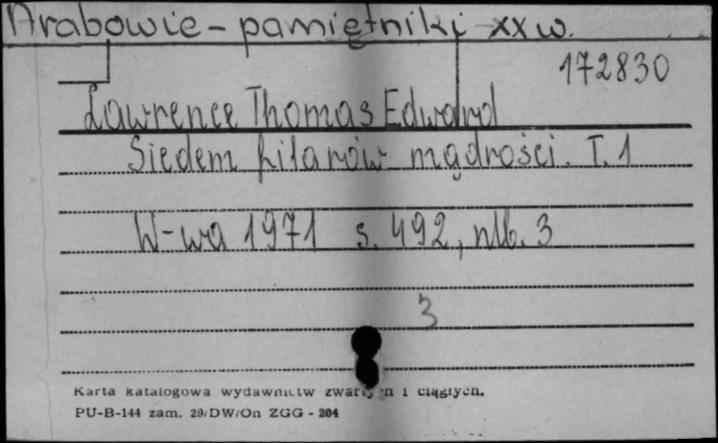 Arabowie - pamiętniki XX w.
172830
Lawrence Thomas Edward
Siedem filarów mądrości. T. 1
W-wa 1971 s. 492, nlb. 3
3
Karta katalogowa wydawnictw zwartych i ciągłych.
PU-B-144 zam. 29/DW/On ZGG - 204